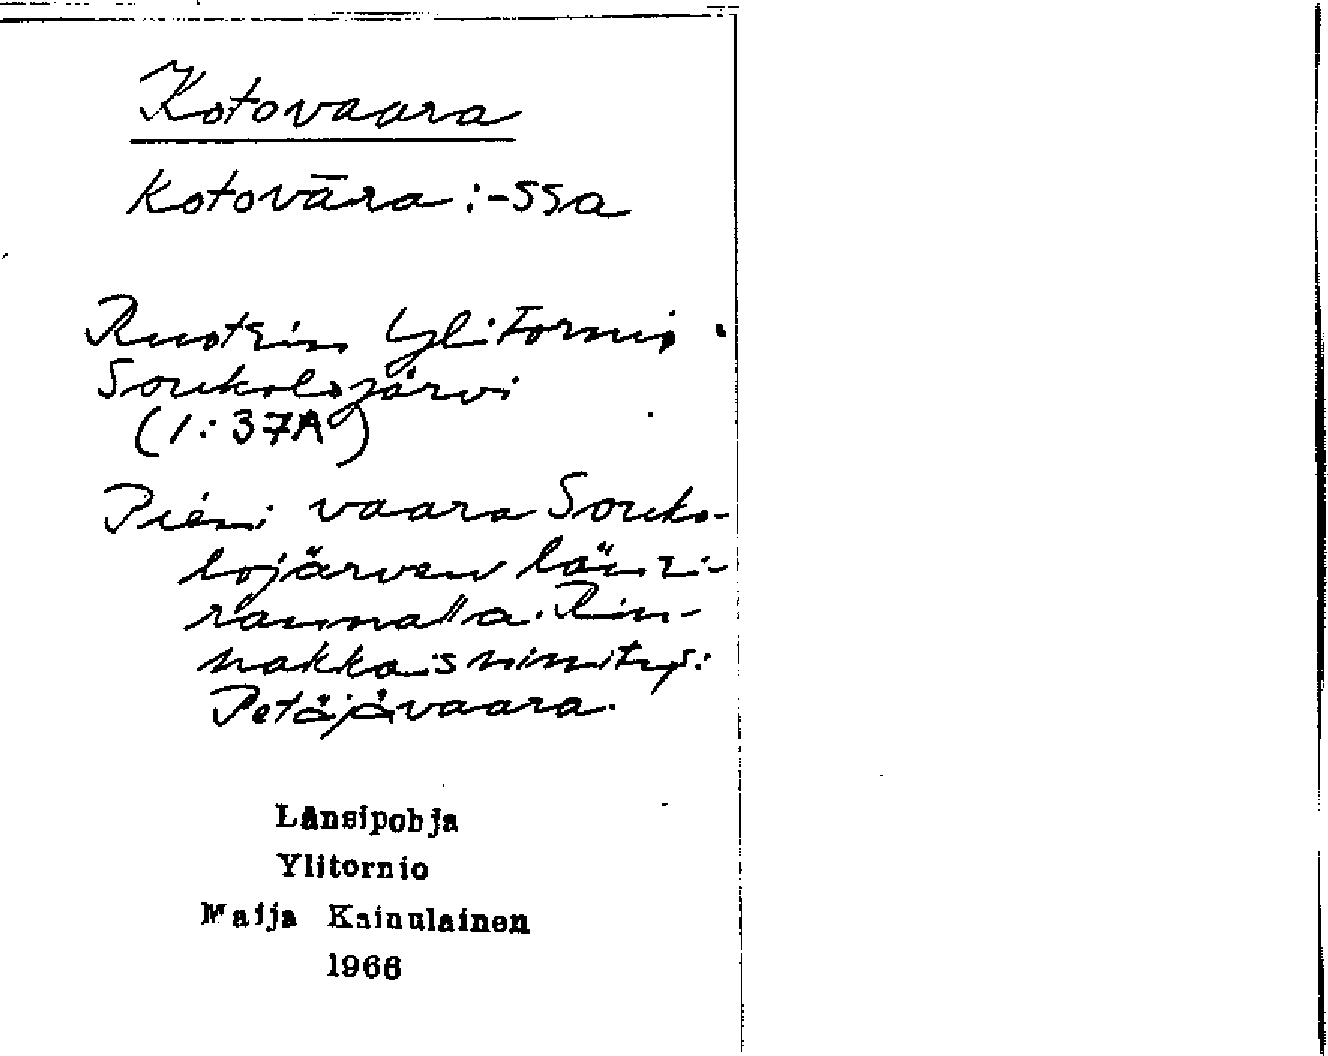 Kotovaara
kotovāra : -ssa
Ruotsin Ylitornio
Soukolojärvi
(1:37A)
Pieni vaara Souko-
lojärven länsi-
rannalla. Rin-
nakkaisnimitys:
Petäjävaara.
Länsipohja
Ylitornio
Maija Kainulainen
1966